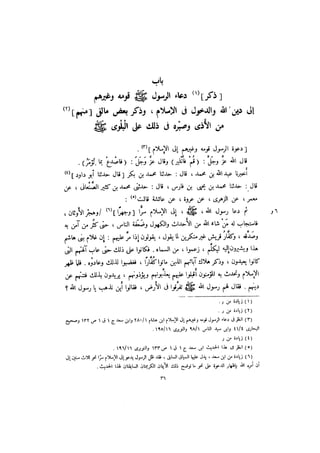 باب
[ ذكر ] (١) دعاء الرسول ﷺ قومه وغيرهم
إلى دين الله والدخول فى الإسلام ، وذكر بعض مالقى [ منهم ] (٢)
من الأذى وصبره فى ذلك على البلوى ﷺ
[ دعوة الرسول قومه وغيرهم إلى الإسلام ] (٣) .
قال الله عز وجل : ( قم فأنذر ) وقال عز وجل : ( فاصدع بما تؤمر ) .
أخبرنا عبد الله بن محمد ، قال : حدثنا محمد بن بكر [ قال حدثنا أبو داود ] (٤)
قال : حدثنا محمد بن يحيى بن فارس ، قال : حدثنى محمد بن كثير الصنعانى ، عن
معمر ، عن الزهرى ، عن عروة ، عن عائشة قالت (٥) :
ثم دعا رسول الله ، ﷺ ، إلى الإسلام سرا [ وجهرا ] (٦) / وهجر الأوثان ، ٦ ر
فاستجاب له من شاء الله من الأحداث والكهول وضعفة الناس ، حتى كثر من آمن به
وصدقه ، وكفار قريش غير منكرين لما يقول ، يقولون إذا مر عليهم : إن غلام بنى هاشم
هذا ويشيرون إليه ليكلم ، زعموا ، من السماء . فكانوا على ذلك حتى عاب آلهتهم التى
كانوا يعبدون ، وذكر هلاك آبائهم الذين ماتوا كفارا ، فغضبوا لذلك وعادوه . فلما ظهر
الإسلام وتحدث به المؤمنون أقبلوا عليهم يعذبونهم ويؤذونهم ، يريدون بذلك فتنتهم عن
دينهم . فقال لهم رسول الله ﷺ تفرقوا فى الأرض ، فقالوا أين نذهب يا رسول الله ؟
(١) زيادة من ر .
(٢) زيادة من ر .
(٣) انظر فى دعاء الرسول قومه وغيرهم إلى الإسلام ابن هشام ٢٨٠/١ وابن سعد ج ١ ق ١ ص ١٣٢ وصحيح
البخارى ٤٤/٥ وابن سيد الناس ٩٨/١ والنويرى ١٩٥/١٦
(٤) زيادة من ر
(٥) انظر فى هذا الحديث ابن سعد ج ١ ق ١ ص ١٣٣ والنويرى ١٩٦/١٦ .
(٦) زيادة من ر .
أن أمره الله بإظهار الدعوة على نحو ما توضح ذلك الآيتان الكريمتان السابقتان لهذا الحديث .
٣٦